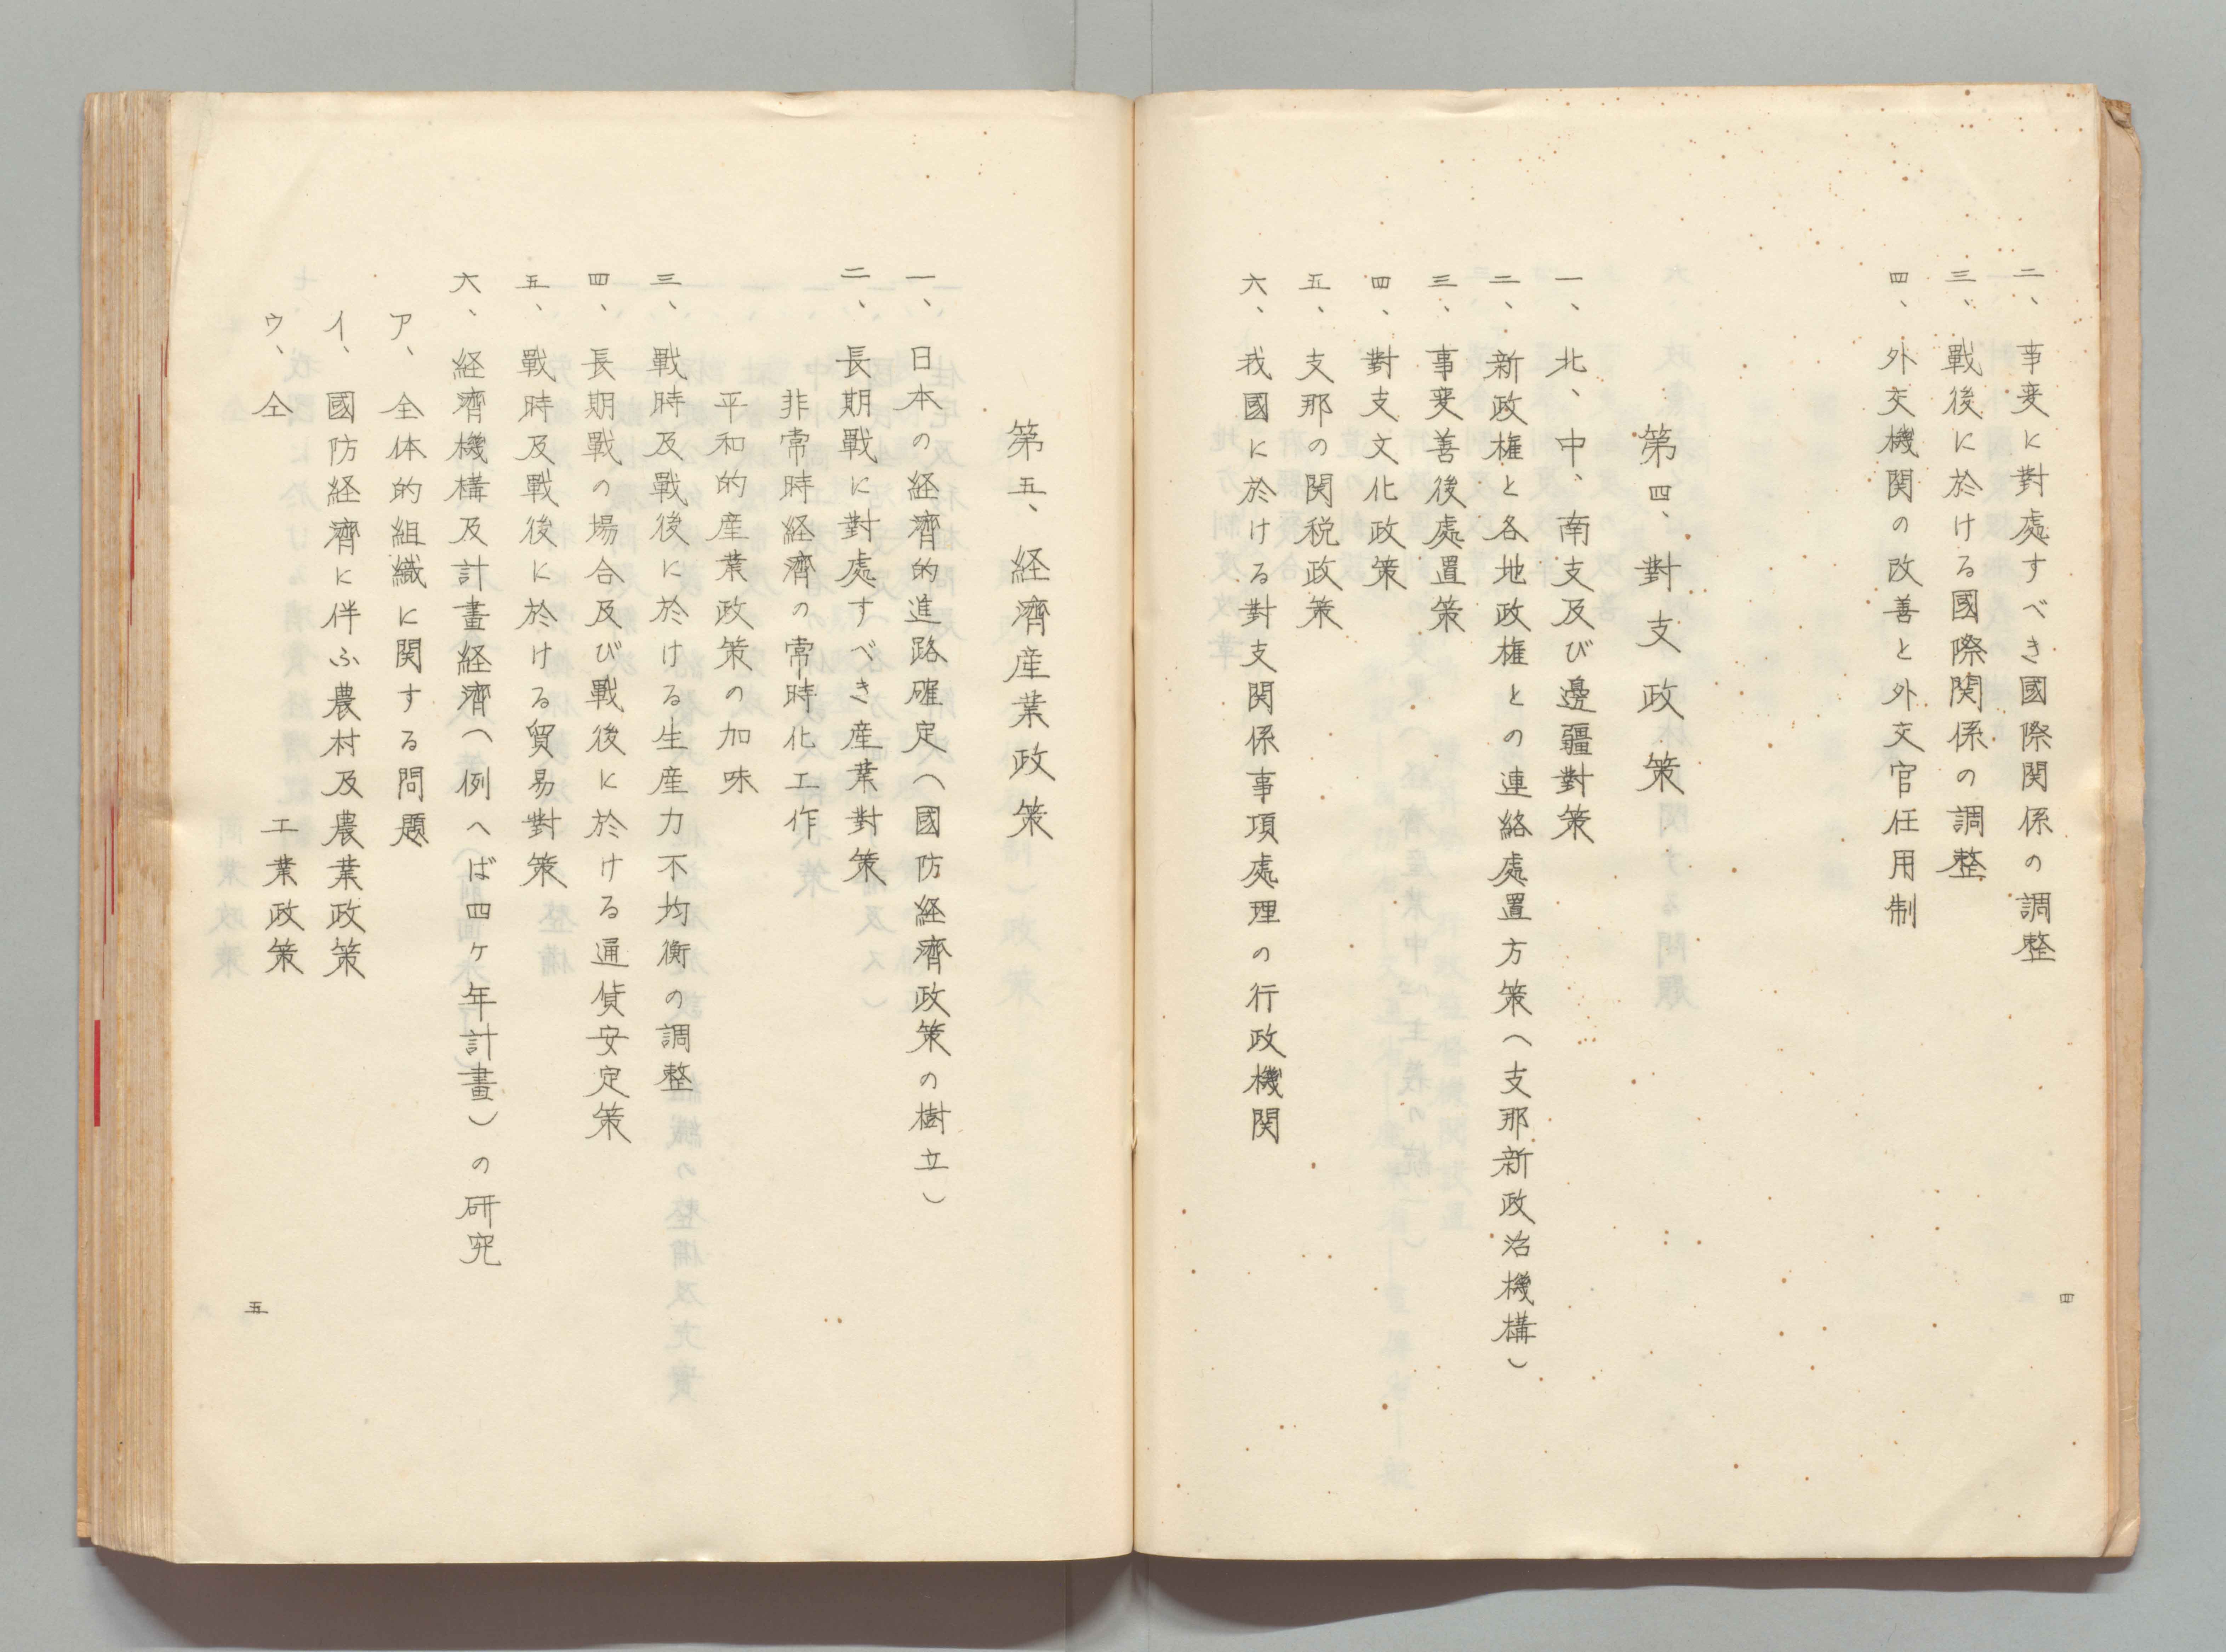 二、事変に對處すべき國際関係の調整
三、戰後に於ける國際関係の調整
四、外交機関の改善と外交官任用制
第四、對支政策
一、北、中、南支及び邊疆對策
二、新政権と各地政権との連絡處置方策(支那新政治機構)
三、事変善後處置策
四、對支文化政策
五、支那の関税政策
六、我國に於ける對支関係事項處理の行政機関
四
第五、経濟産業政策
一、日本の経濟的進路確定(國防経濟政策の樹立)
二、長期戰に對處すべき産業對策
非常時経濟の常時化工作
平和的産業政策の加味
三、戰時及戰後に於ける生産力不均衡の調整
四、長期戰の場合及び戰後に於ける通貨安定策
五、戰時及戰後に於ける貿易對策
六、経濟機構及計畫経濟(例へば四ケ年計畫)の研究
ア、全体的組織に関する問題
イ、國防経濟に伴ふ農村及農業政策
ウ、仝 工業政策
五